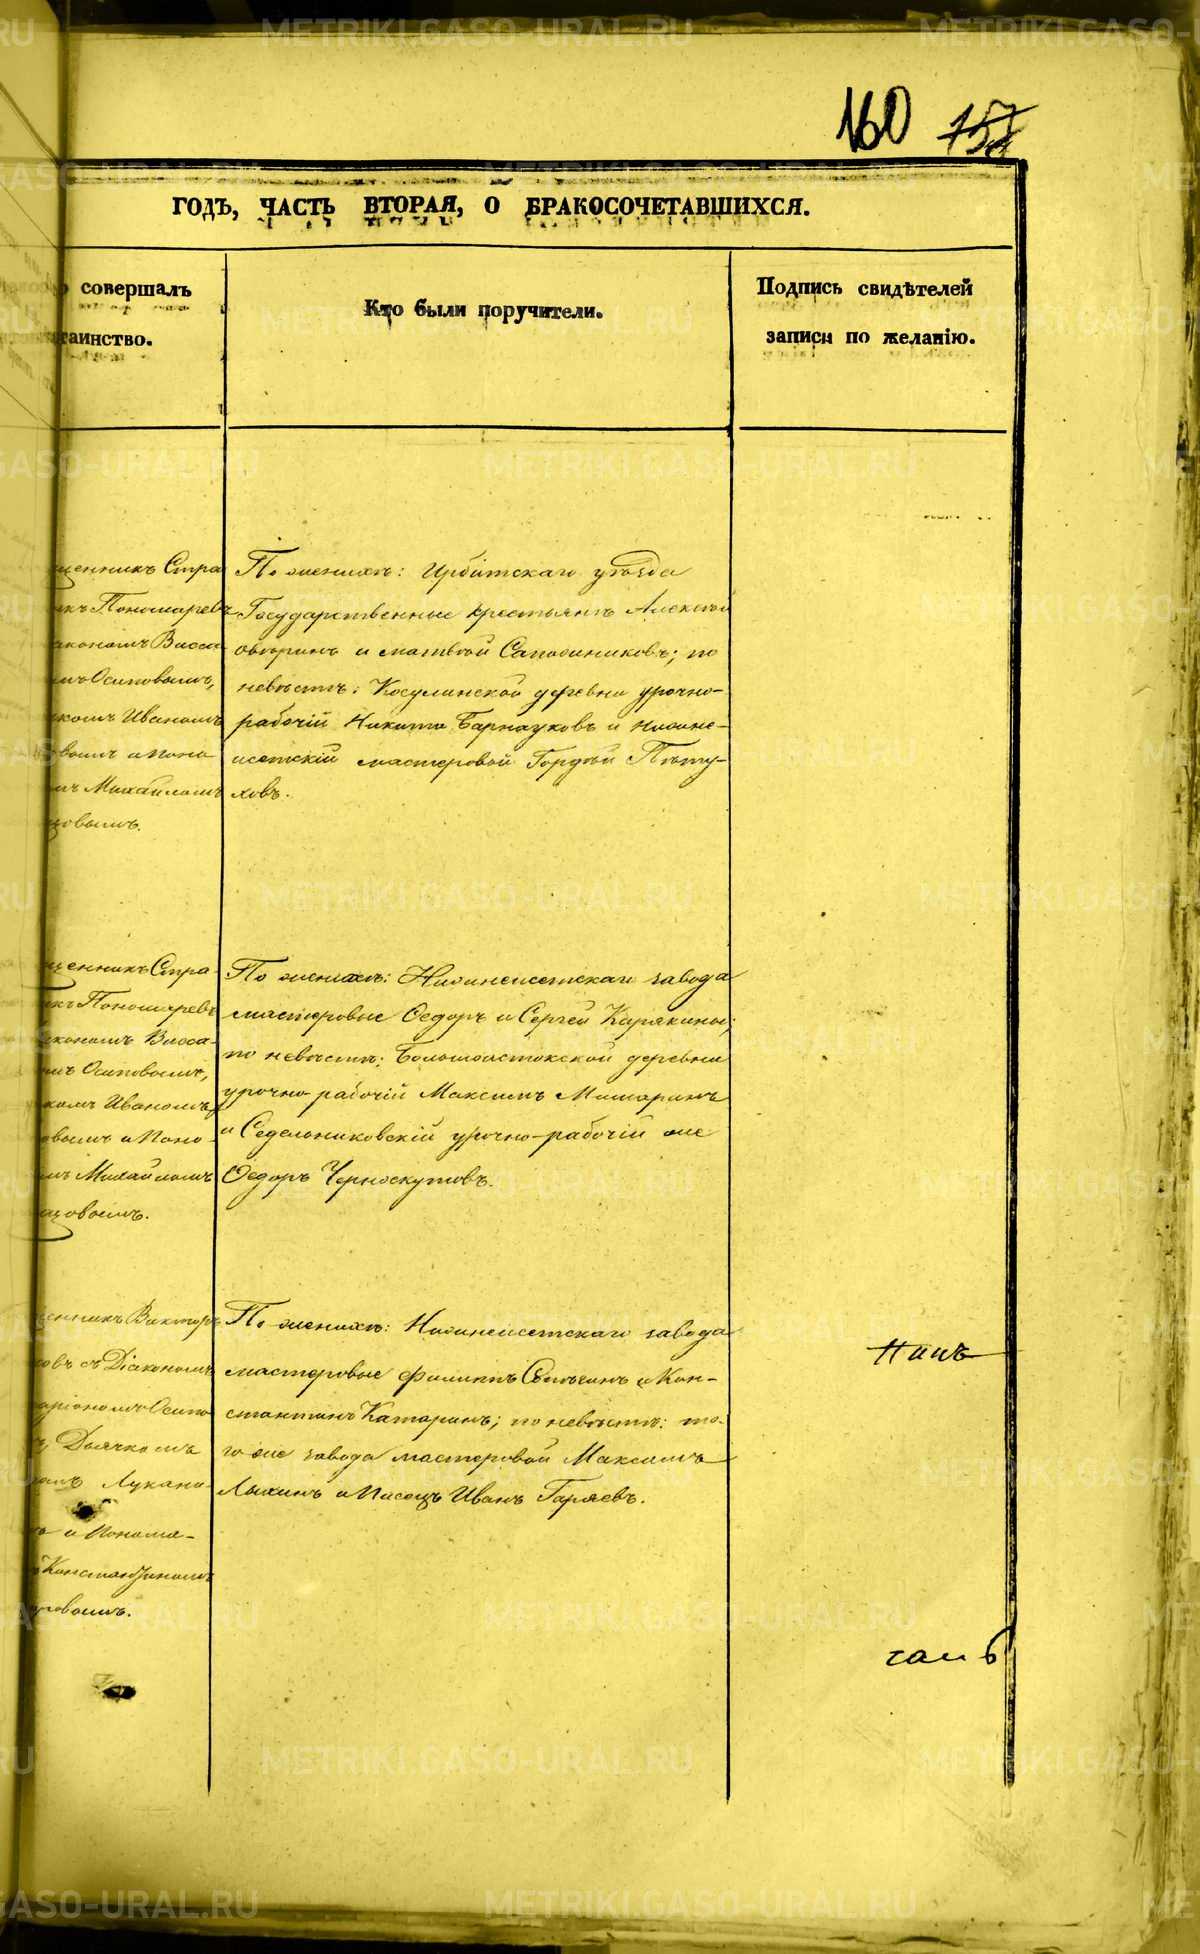 160 157
ГОДЪ, ЧАСТЬ ВТОРАЯ, О БРАКОСОЧЕТАВШИХСЯ.
совершалъ
таинство.
Кто были поручители.
Подпись свидѣтелей
записи по желанію.
щенникъ Стра
икъ Пономаревъ
акономъ Висса
мъ Осиповымъ,
комъ Иваномъ
вымъ и поно
мъ Михаиломъ
цовымъ.
По женихѣ: Ирбитскаго уѣзда
Государственные крестьяне Алексѣй
и Матвѣй Сапожниковъ; по
невѣстѣ: Косулинской деревни урочно-
рабочій Никита Барнауковъ и Нижне-
исетскій мастеровой Гордѣй Пѣту-
ховъ.
щенникъ Стра-
икъ Пономаревъ
акономъ Висса-
мъ Осиповымъ,
комъ Иваномъ
овымъ и поно-
мъ Михаиломъ
цовымъ.
По женихѣ: Нижнеисетскаго завода
мастеровые Ѳедоръ и Сергѣй Карякины;
по невѣстѣ: Большеистокской деревни
урочно рабочій Максимъ Мишаринъ
и Седельниковскій урочно-рабочій же
Ѳедоръ Черноскутовъ.
щенникъ Викторъ
овъ съ Діакономъ
аріономъ Осипо
Дьячкомъ
Лукано-
и понома-
Константиномъ
ровымъ.
По женихѣ: Нижнеисетскаго завода
мастеровые Филиппъ и Кон-
стантинъ Катаринъ; по невѣстѣ: то-
го же завода мастеровой Максимъ
Лыхинъ и писецъ Иванъ Гаряевъ.
METRIKI.GASO-URAL.RU